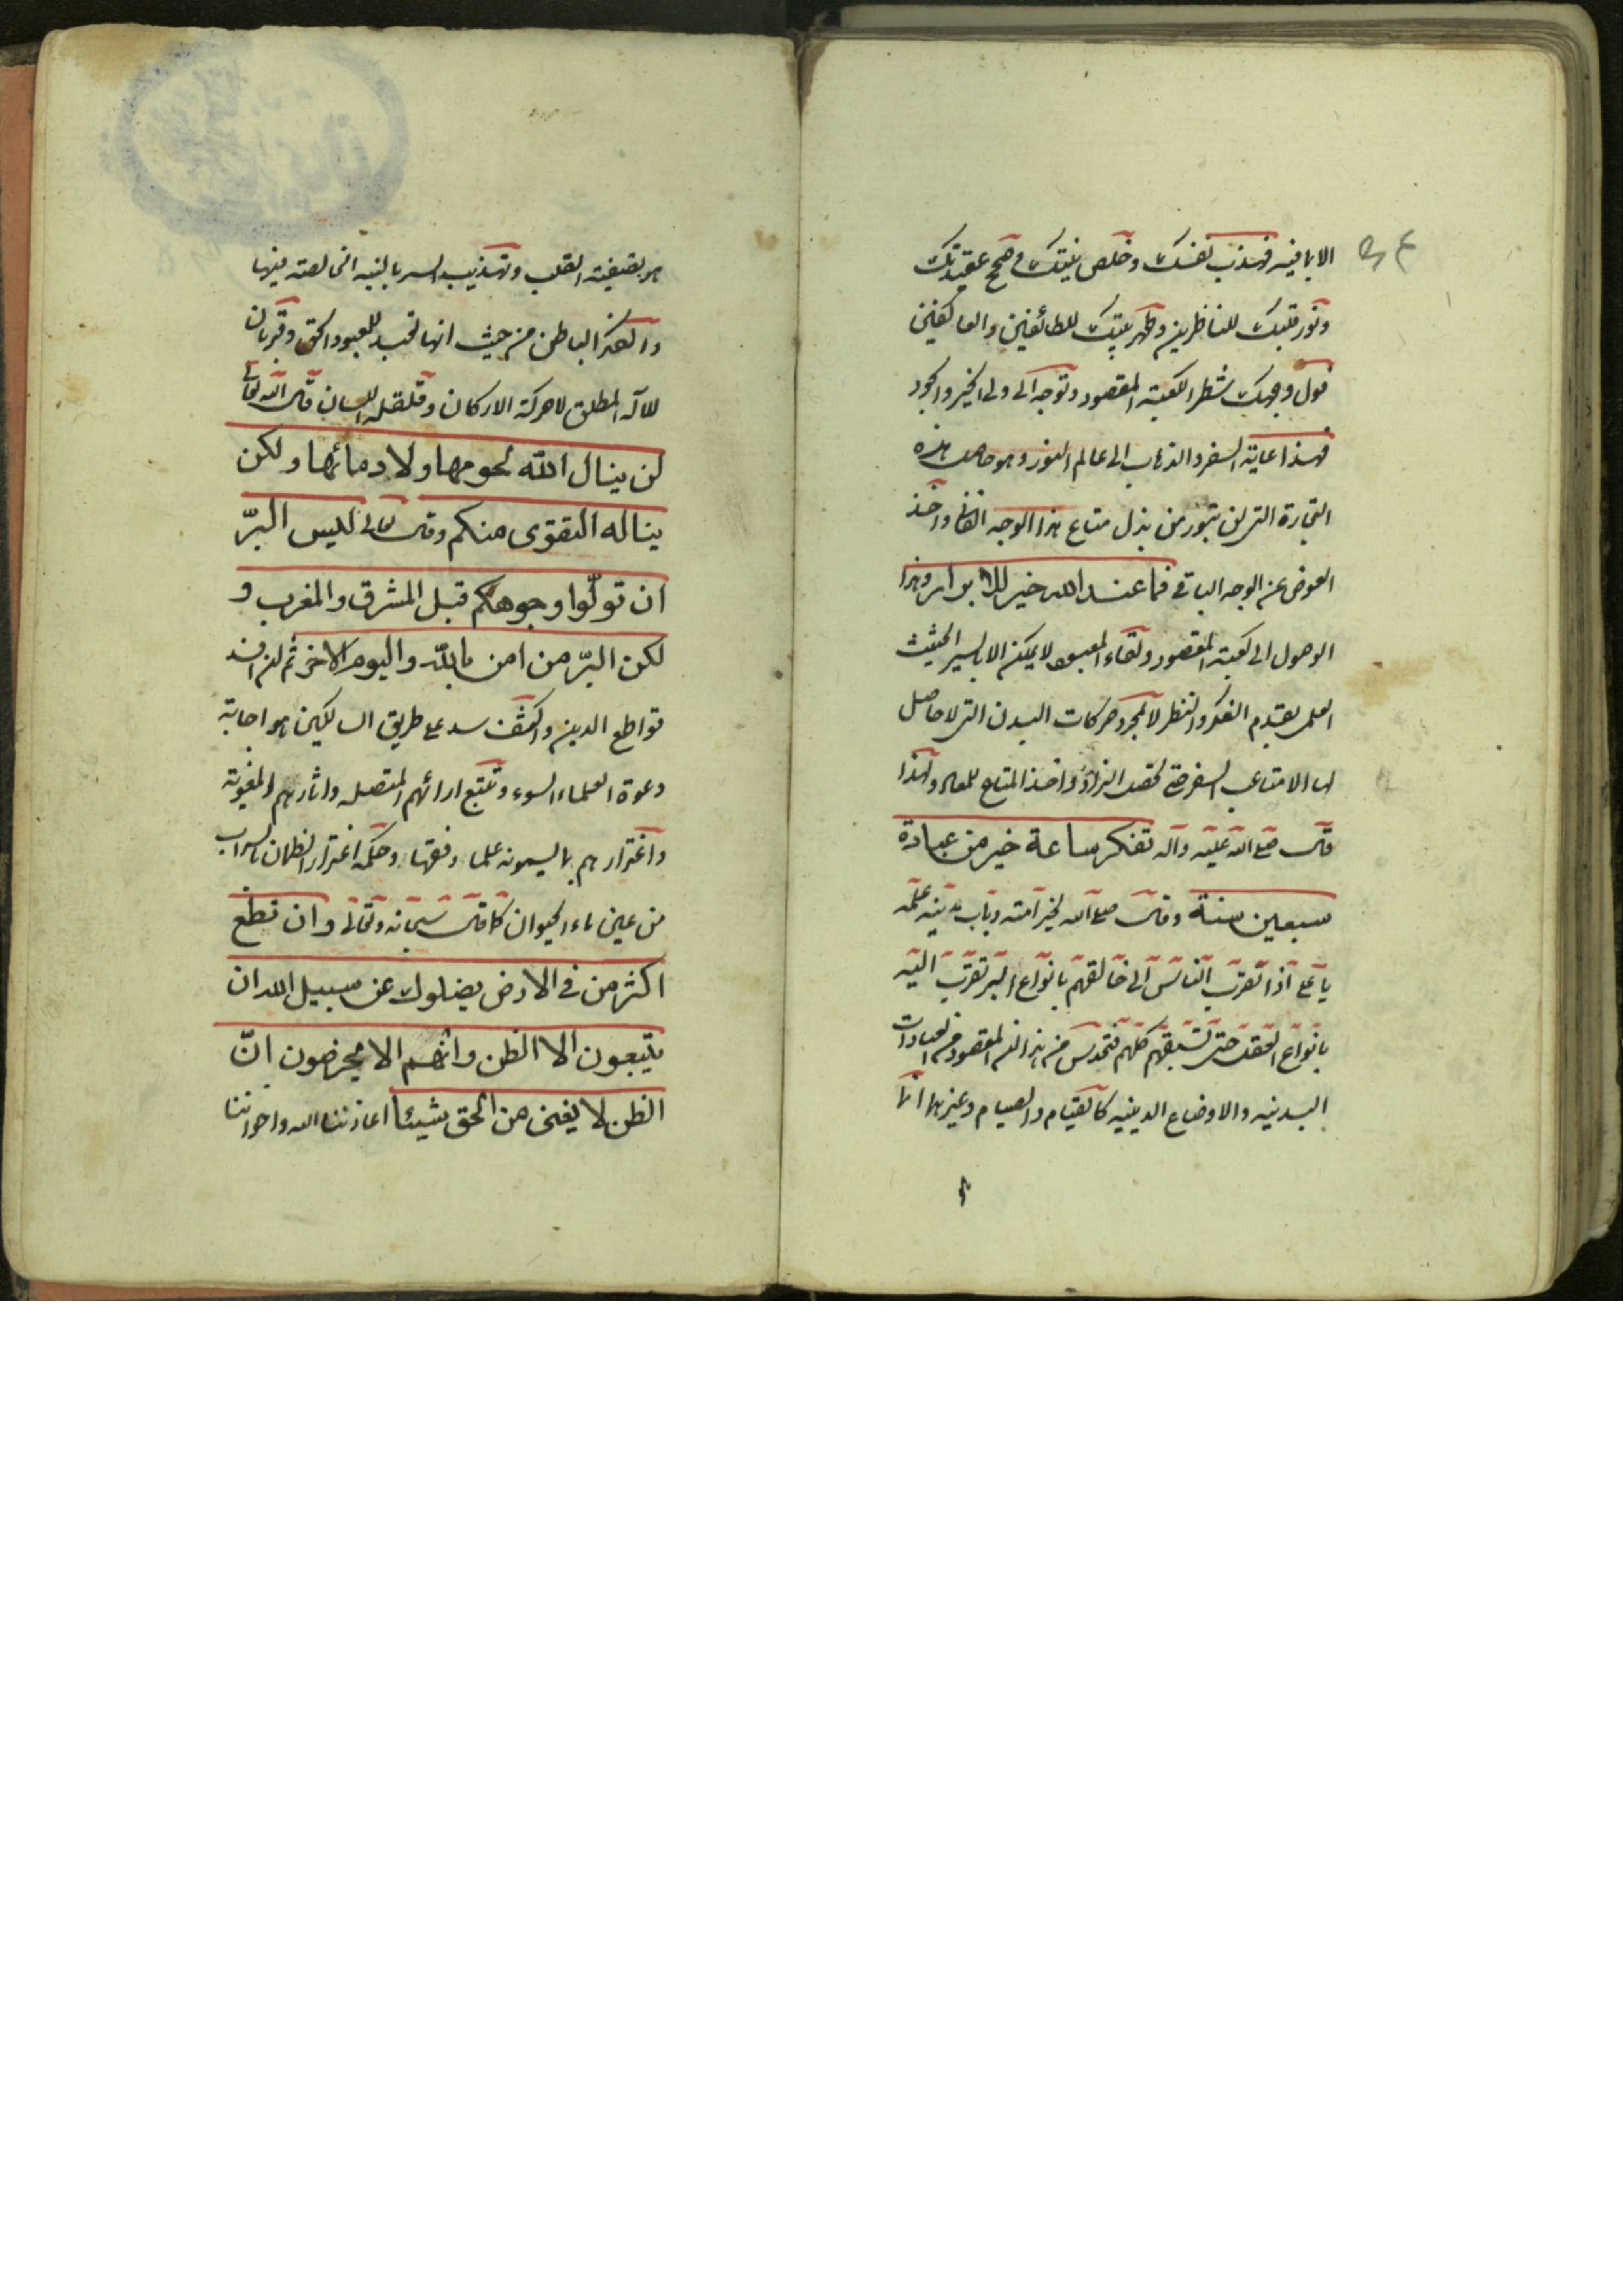 الا بما فيه فهذب نفسك وخلص نيتك وصحح عقيدتك
ونور قلبك للناظرين وطهر بيتك للطائفين والعاكفين
فول وجهك شطر الكعبة المقصود وتوجه الى ولى الخير والجود
فهذا غاية السفر والذهاب الى عالم النور وهو حاصل هذه
التجارة التى لن تبور من بذل متاع هذا الوجه الفانى واخذ
العوض عن الوجه الباقى فما عند الله خير للابرار وهذا
الوصول الى كعبة المقصود ولقاء المعبود لا يمكن الا بالسير الحثيث
العلمى بقدم الفكر والنظر لا بمجرد حركات البدن التى لا حاصل
لها الا متاعب السفر دون تحصيل الزاد واخذ المتاع للمعاد ولهذا
قال صلى الله عليه وآله تفكر ساعة خير من عبادة
سبعين سنة وقال صلى الله لخير امته وباب مدينة علمه
يا على اذا تقرب الناس الى خالقهم بانواع البر تقرب اليه
بانواع العقل حتى تسبقهم كلهم فتحدس من هذا ان المقصود من العبادات
البدنيه والاوضاع الدينيه كالقيام والصيام وغيرها انما
هو تصفية القلب وتهذيب السر بالنيه الخالصة فيها
والفكر الباطن من حيث انها تعبد للمعبود الحق وقربان
للاله المطلق لا حركة الاركان وقلقله اللسان قال الله تعالى
لن ينال الله لحومها ولا دمائها ولكن
يناله التقوى منكم وقال تعالى ليس البرّ
ان تولّوا وجوهكم قبل المشرق والمغرب و
لكن البرّ من امن بالله واليوم الاخر ثم ان اشد
قواطع الدين واكشف سد على طريق السالكين هو اجابة
دعوة العلماء السوء وتتبع ارائهم المضله واثارهم المغوية
واغترارهم بما يسمونه علما وفقها وحكمة اغترار الظمان بالسراب
من عين ماء الحيوان كما قال سبحانه وتعالى وان تطع
اكثر من فى الارض يضلوك عن سبيل الله ان
يتبعون الا الظن وانهم الا يخرصون انّ
الظن لا يغنى من الحق شيئا اعاذنا الله واخواننا